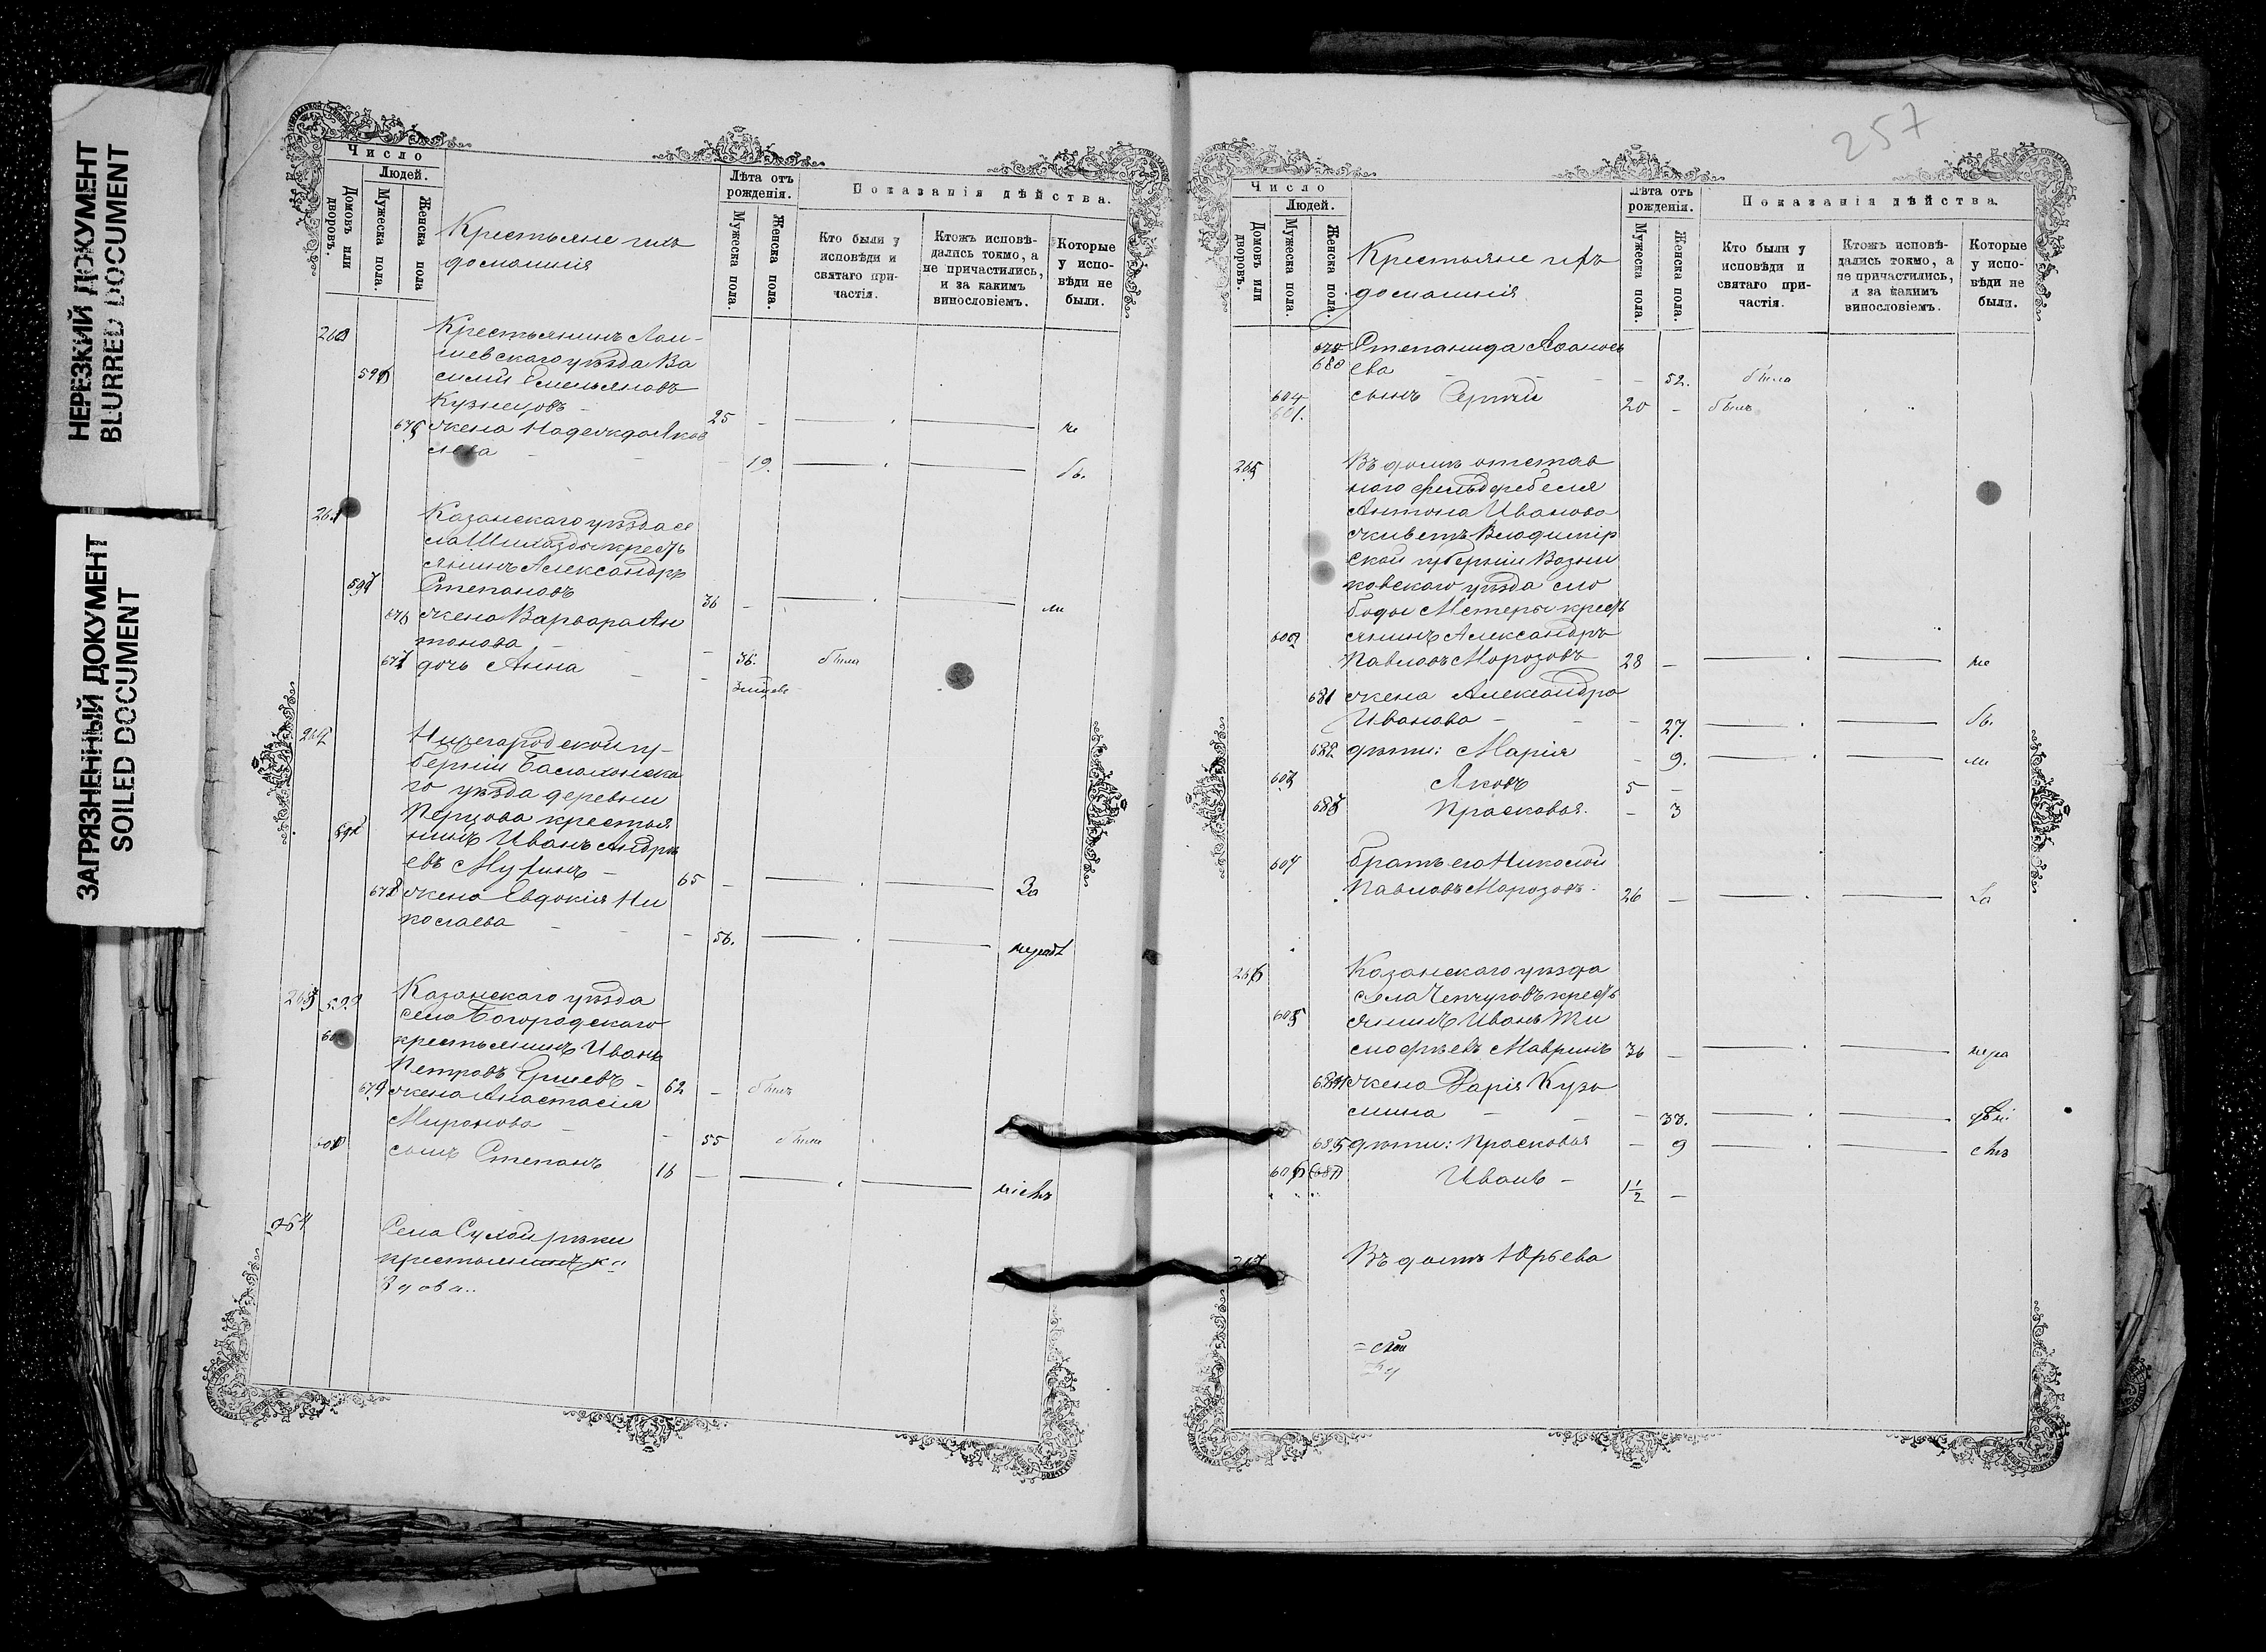 НЕРЕЗКИЙ ДОКУМЕНТ
BLURRED DOCUMENT
ЗАГРЯЗНЕННЫЙ ДОКУМЕНТ
SOILED DOCUMENT
Число
Людей.
Домовъ или дворовъ.
Мужеска пола.
Женска пола
Крестьяне ихъ
домашнія
Лѣта отъ рожденія.
Мужеска пола.
Женска пола.
Показанія дѣйства.
Кто были у исповѣди и святаго при-частія.
Ктожъ исповѣ-дались токмо, а не причастились, и за какимъ винословіемъ.
Которые у испо-вѣди не были.
260 Крестьянинъ Лаи-
шевскаго уѣзда Ва
силій Емельяновъ
Кузнецовъ - 25 - не
жена Надежда Яков
лева - 19. бы.
261 Казанскаго уѣзда се
ла Шигазды крестьь
янинъ Александръ
Степановъ 36 - ли
жена Варвара Ан
тонова - 36. была
677 дочь Анна
262 Нижегородской гу-
берніи Балахонска
го уѣзда деревни
Перцова крестья
нинъ Иванъ Андре
евъ Мухинъ - 65 - За
678 жена Евдокія Ни
колаева - 56.
263 599 Казанскаго уѣзда
села Богородскаго
крестьянинъ Иванъ
Петровъ Ершевъ - 62 - былъ
679 жена Анастасія
Миронова - 55 была
600 сынъ Степанъ 16 -
264 Села Сухой рѣки
257
Число
Людей.
Домовъ или дворовъ.
Мужеска пола.
Женска пола.
Крестьяне ихъ
домашнія
Лѣта отъ рожденія.
Мужеска пола.
Женска пола.
Показанія дѣйства.
Кто были у исповѣди и святаго при-частія.
Ктожъ исповѣ-дались токмо, а не причастились, и за какимъ винословіемъ.
Которые у испо-вѣди не были.
680 Степанида Афанась
ева - 52. была
601. сынъ Сергѣй 20 - былъ
265 Въ домѣ отстав
ного фельдфебеля
Антона Иванова
живетъ Владимір
ской губерніи Вязни
ковскаго уѣзда сло
боды Мстеры крестьь
602 янинъ Александръ
Павловъ Морозовъ 28 - не
681 жена Александра
Иванова - 27. бы.
682 дѣти: Марія - 9. ли
603 Яковъ 5 -
683 Прасковья. - 3
604 братъ его Николай
Павловъ Морозовъ. 26 - За
266 Казанскаго уѣзда
села Чепчуговъ крестьь
605 янинъ Иванъ Ти
мофѣевъ Мавринъ 36 - нера
684 жена Дарія Кузь
мина - 33.
685 дѣти: Прасковья - 9
606 Иванъ - 1 1/2 -
267 Въ домѣ Юрьева